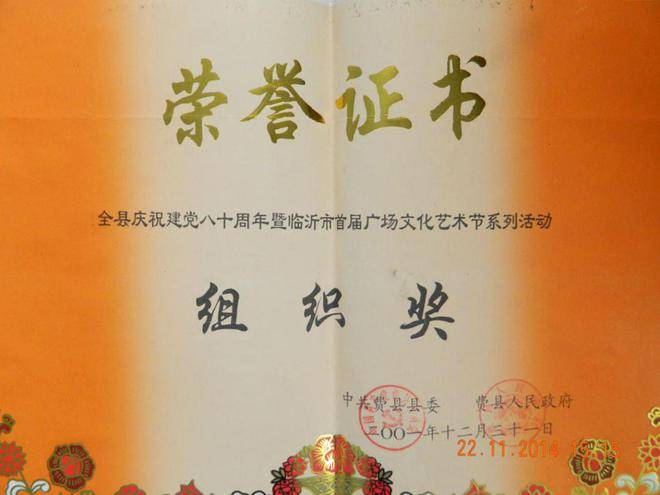 荣誉证书
全县庆祝建党八十周年暨临沂市首届广场文化艺术节系列活动
组织奖
中共费县县委 费县人民政府
二〇〇一年十二月三十一日
22.11.2014